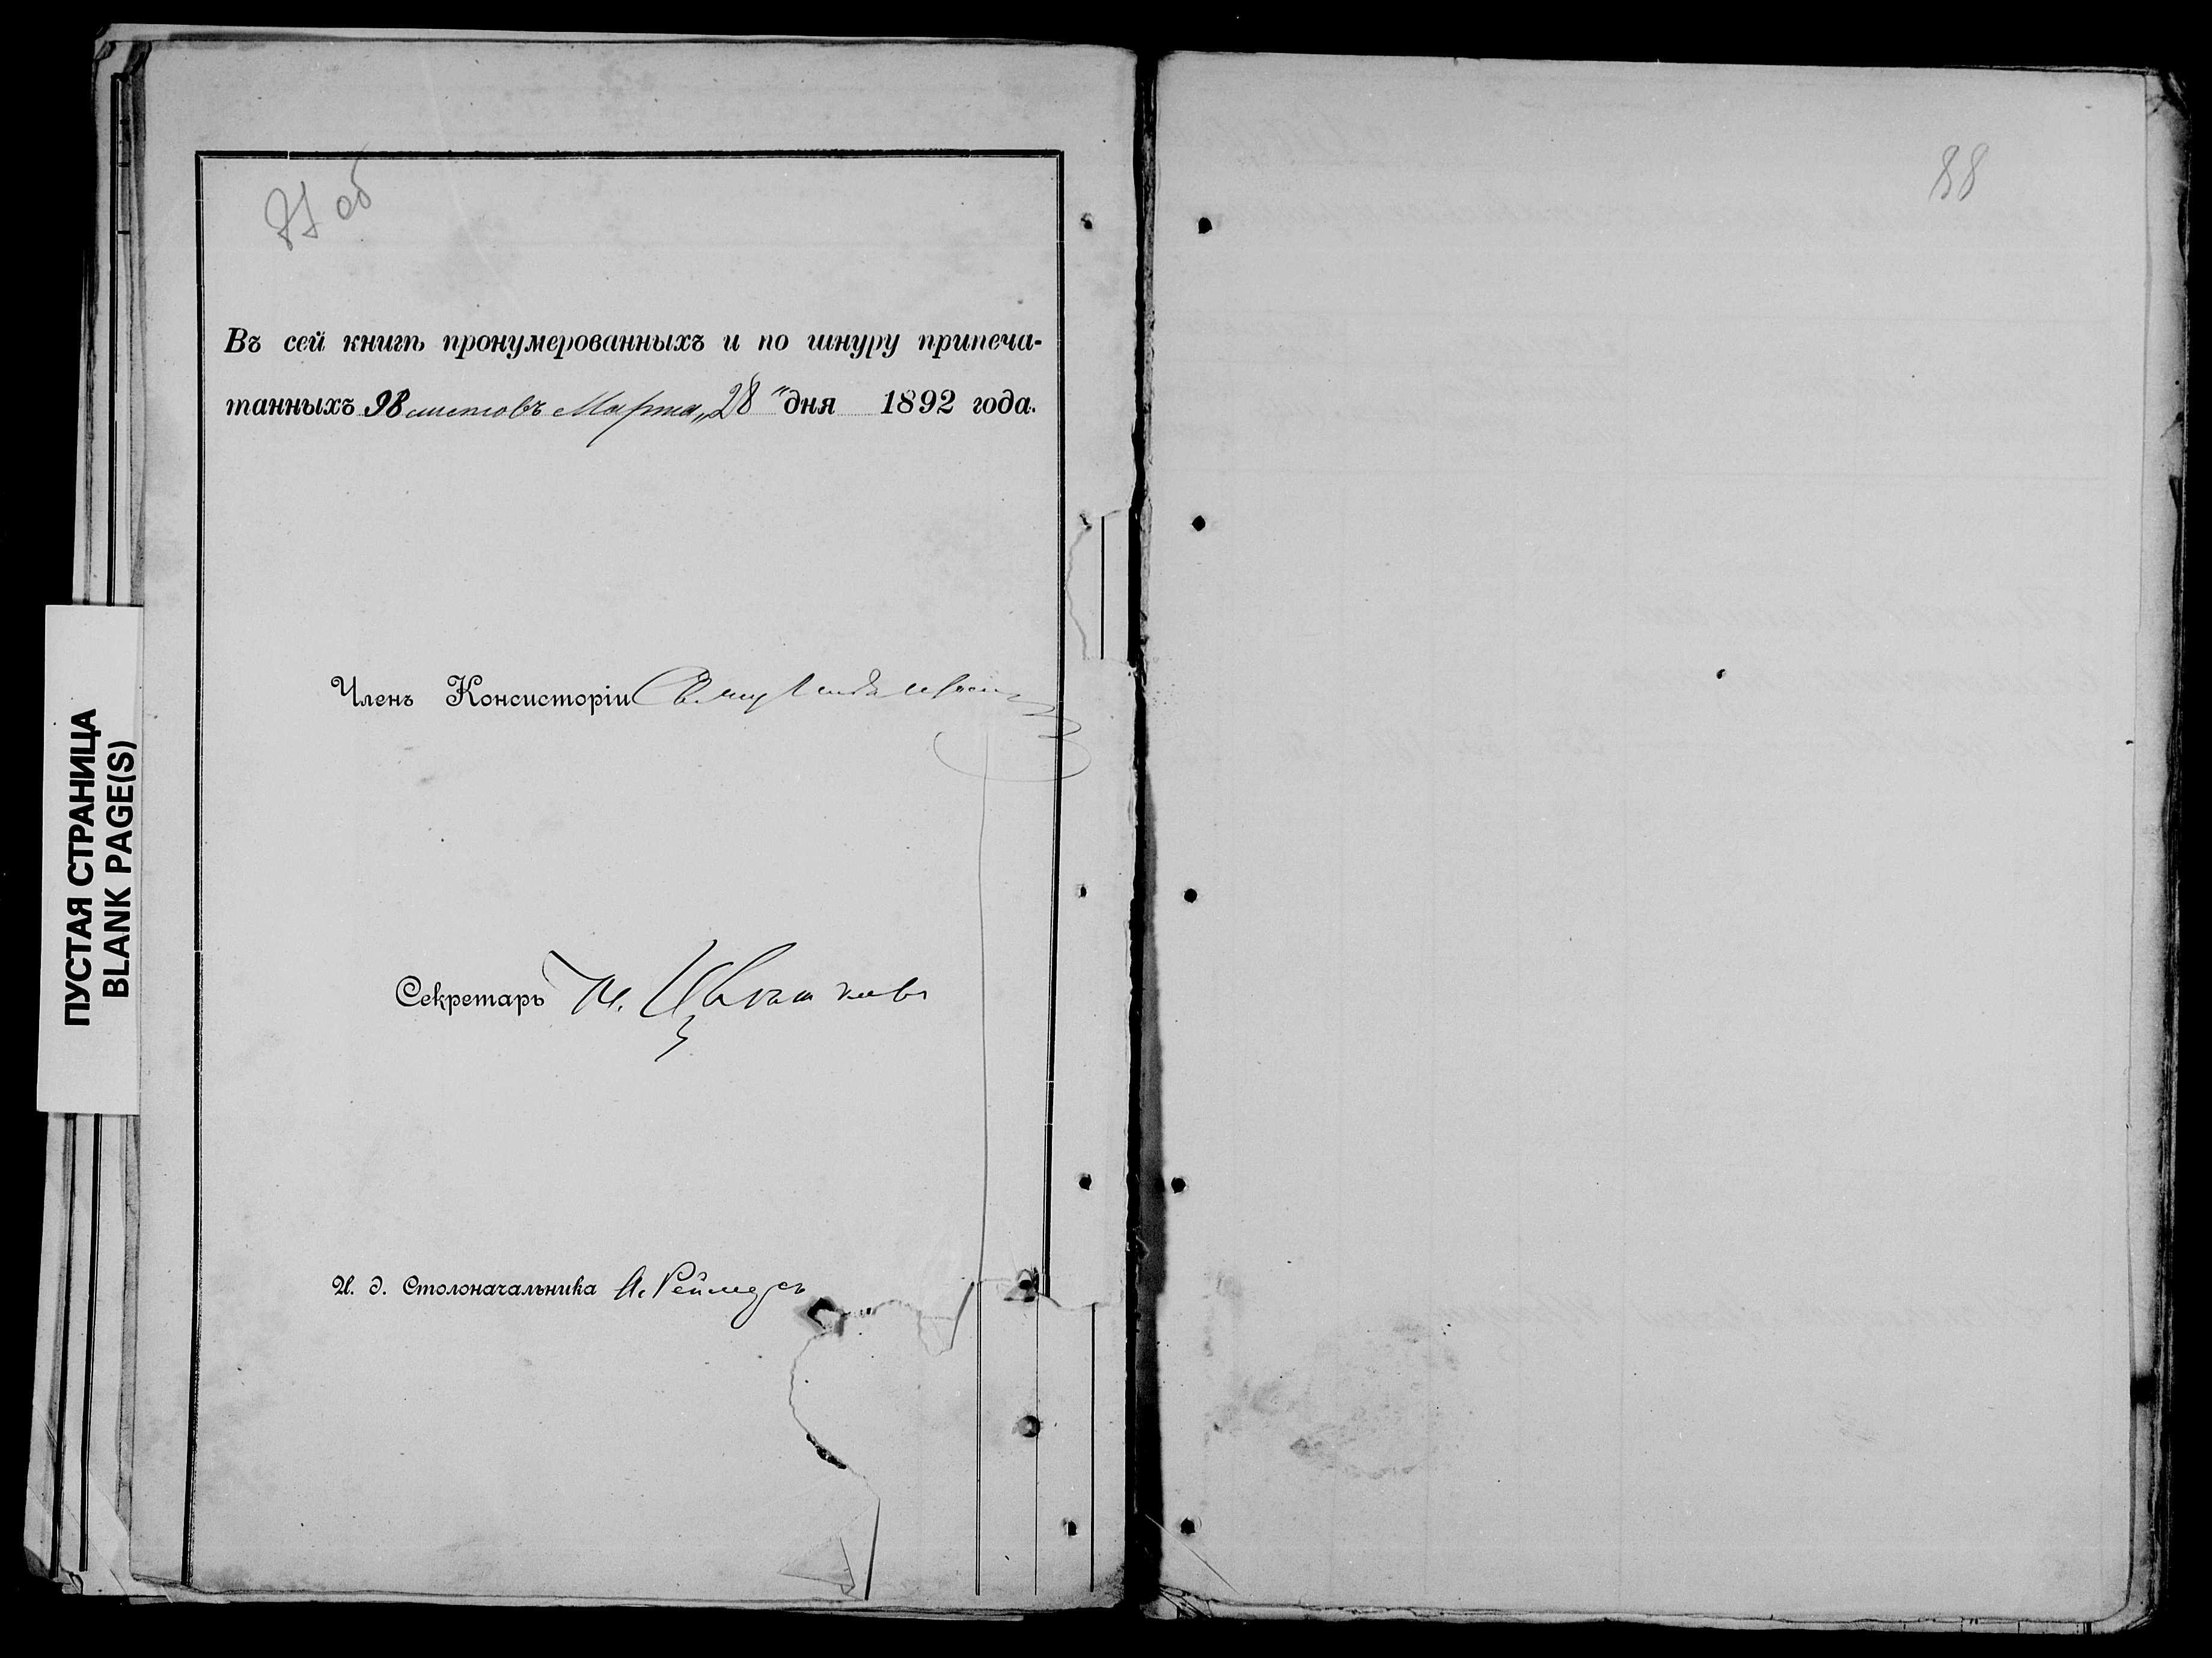 87 об
Въ сей книгѣ пронумерованныхъ и по шнуру припеча-
танныхъ 98 листовъ Марта „28" дня 1892 года.
Членъ Консисторіи
Секретарь Н. Цвѣтковъ
И. д. Столоначальника А.
ПУСТАЯ СТРАНИЦА
BLANK PAGE(S)
88